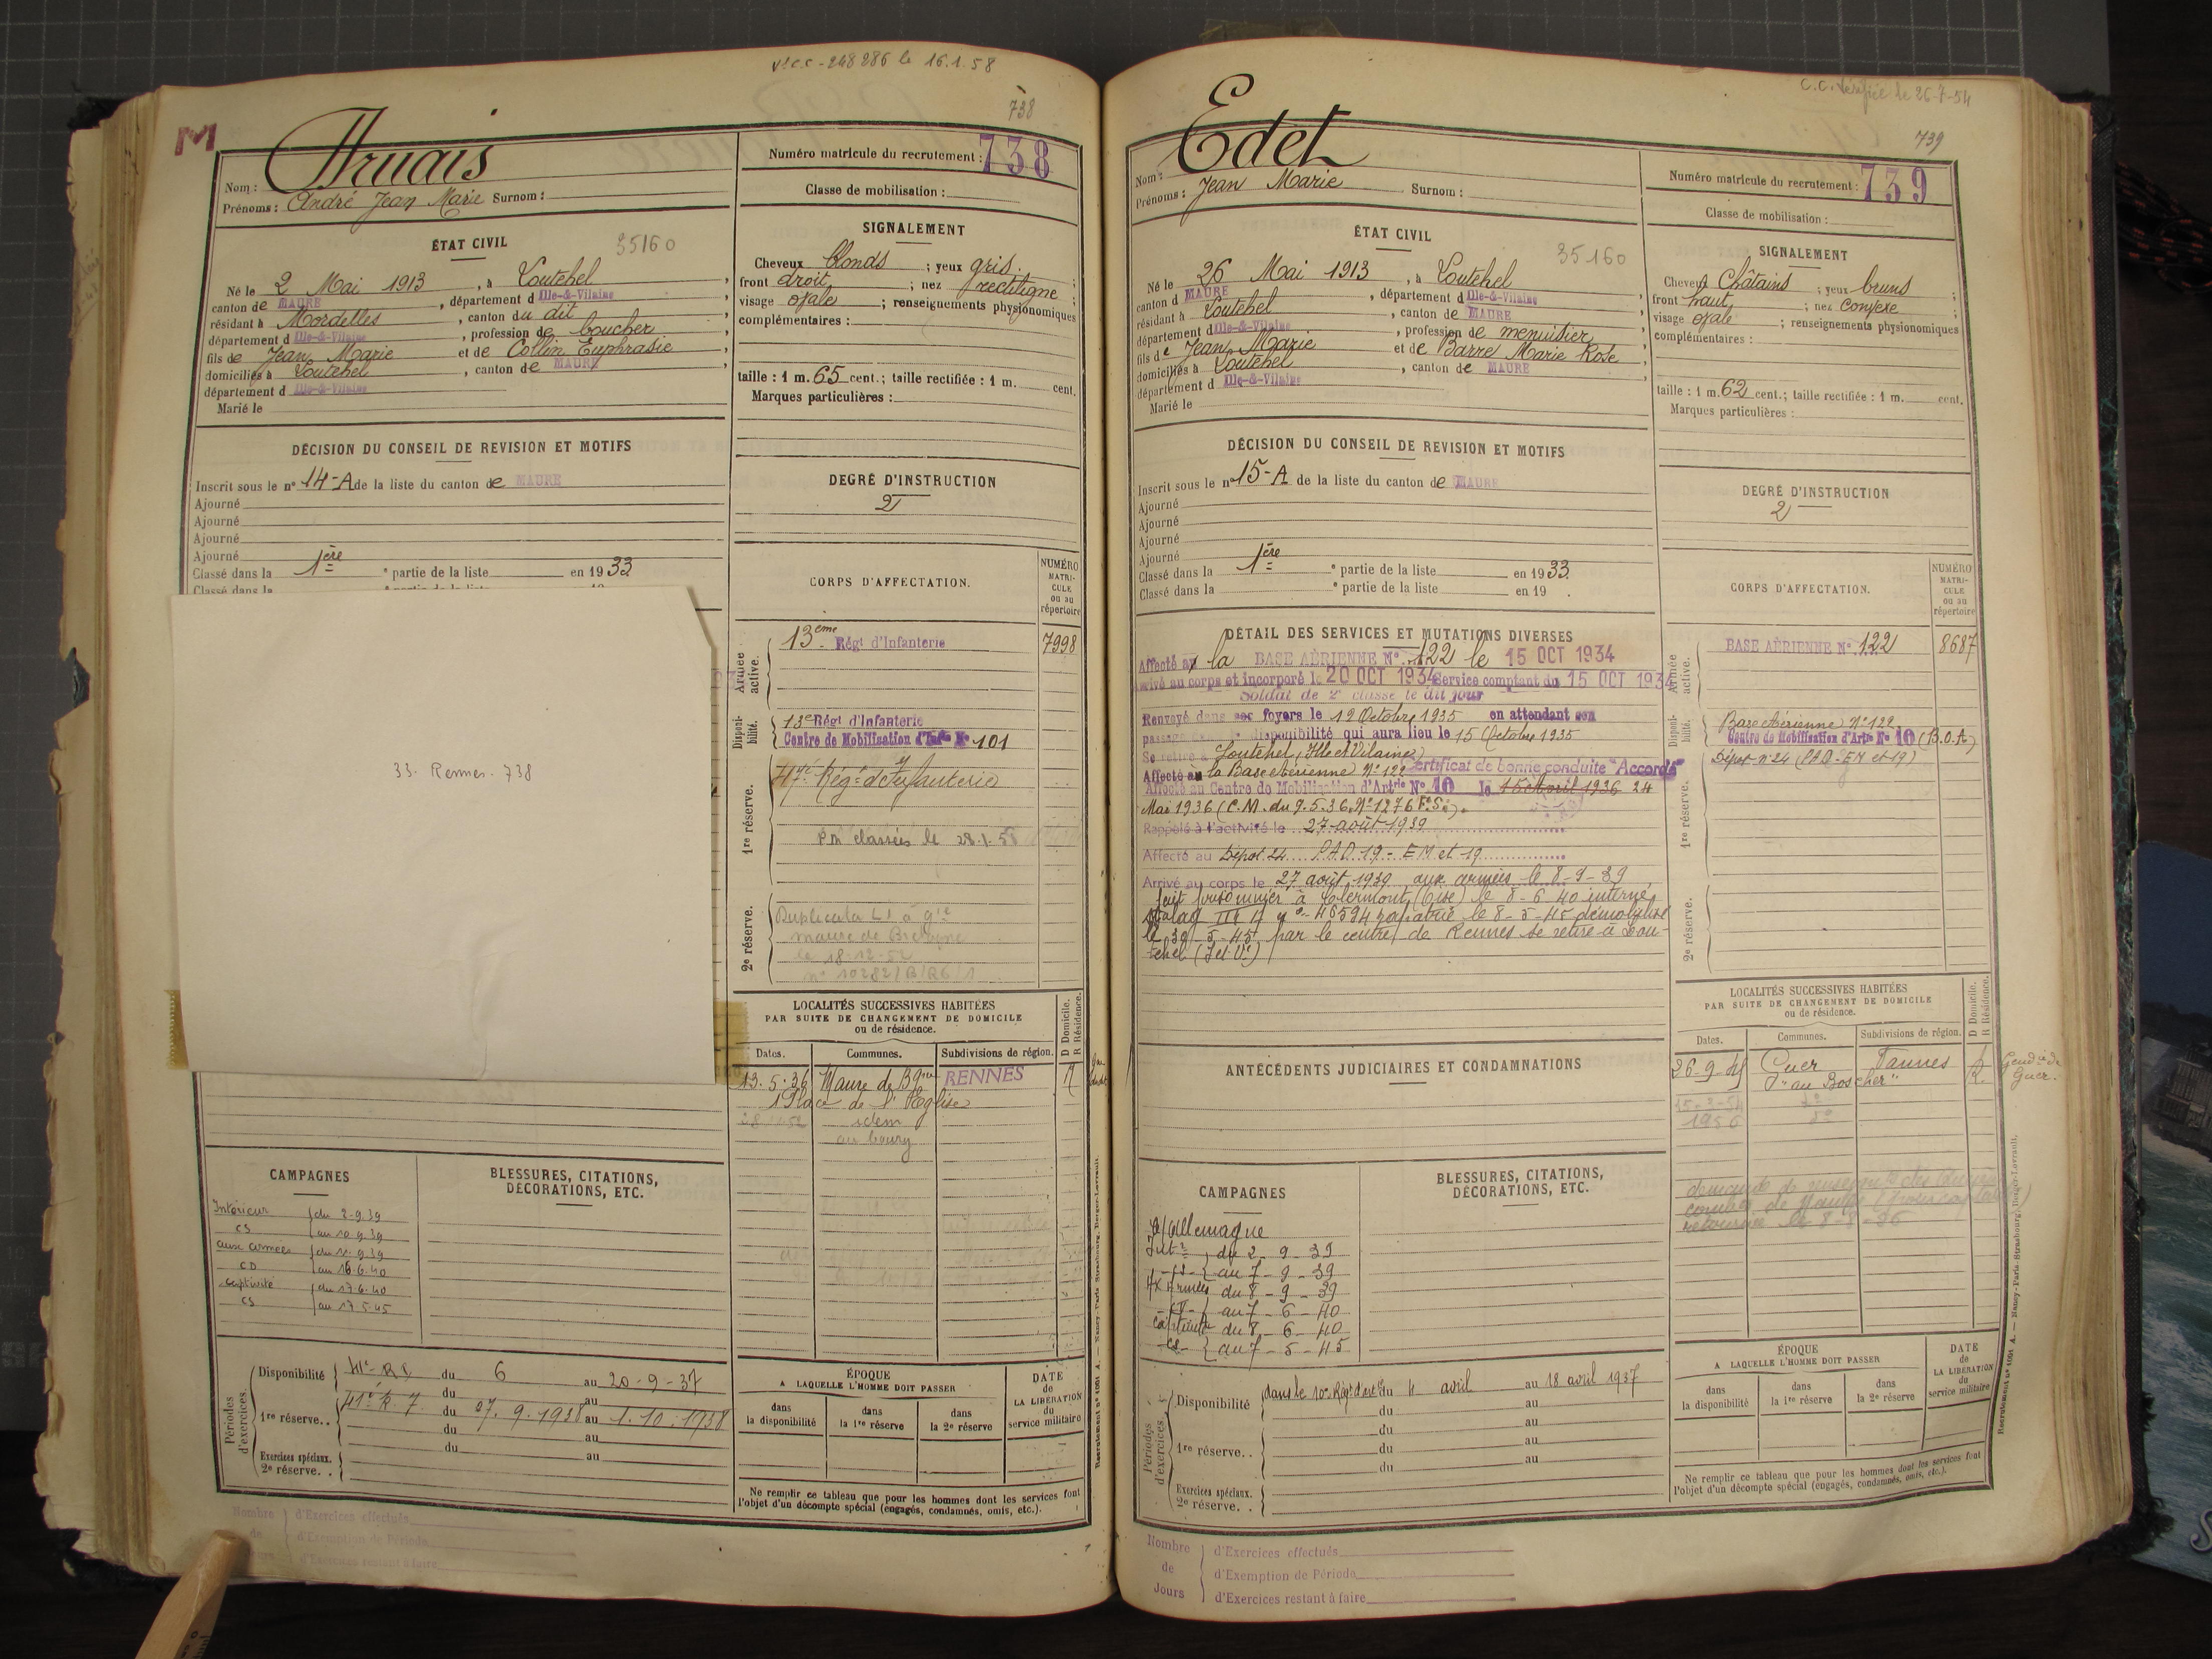 Vt C.C - 248286 le 16.1.58
738
M
Nom : Aruais
Prénoms : André Jean Marie Surnom :
Numéro matricule du recrutement : 738
Classe de mobilisation :
ÉTAT CIVIL 35160
Né le 2 Mai 1913, à Loutehel,
canton de MAURE, département d Ille-&-Vilaine
résidant à Mordelles, canton du dit,
département d Ille-&-Vilaine, profession de boucher
fils de Jean Marie et de Collin Euphrasie,
domiciliés à Loutehel, canton de MAURE,
département d Ille-&-Vilaine
Marié le
SIGNALEMENT
Cheveux blonds ; yeux gris. ;
front droit ; nez rectiligne ;
visage ovale ; renseignements physionomiques
complémentaires :
taille : 1 m. 65 cent.; taille rectifiée : 1 m. cent.
Marques particulières :
DÉCISION DU CONSEIL DE REVISION ET MOTIFS
Inscrit sous le n° 14-A de la liste du canton de MAURE
Ajourné
Ajourné
Ajourné
Ajourné
Classé dans la 1ère e partie de la liste en 1933
Classé dans la e partie de la liste 19
DEGRÉ D'INSTRUCTION
2
CORPS D'AFFECTATION.
NUMÉRO MATRI-CULE ou au répertoire
33. Rennes. 738
Armée active.
13eme Régt d'Infanterie 7998
Disponi-bilité.
13e Régt d'Infanterie
Centre de Mobilisation d'Infie N° 101
1re réserve.
41e Régt d'Infanterie
Pn classées le 28.1.58
2e réserve.
Duplicata L1 à gie
maure de Bretagne
le 18-12-52
n° 10282/B/R6/1
LOCALITÉS SUCCESSIVES HABITÉES
PAR SUITE DE CHANGEMENT DE DOMICILE
ou de résidence.
D Domicile.
R Résidence.
Dates. Communes. Subdivisions de région.
13.5.36 Maure de Bgne RENNES R
1 Place de l'Eglise
idem
au bourg
CAMPAGNES
Intérieur du 2-9-39
CS au 10.9.39
aux armées du 11.9.39
CD au 16.6.40
captivité du 17.6.40
CS au 17.5.45
BLESSURES, CITATIONS,
DÉCORATIONS, ETC.
Périodes d'exercices.
Disponibilité 41e R.I. du 6 au 20-9-37
du au
1re réserve. . 41e R.I. du 07.9.1938 au 1.10.1938
du au
du au
Exercices spéciaux.
2e réserve. .
ÉPOQUE
A LAQUELLE L'HOMME DOIT PASSER
dans la disponibilité
dans la 1re réserve
dans la 2e réserve
DATE de LA LIBÉRATION du service militaire
Ne remplir ce tableau que pour les hommes dont les services font
l'objet d'un décompte spécial (engagés, condamnés, omis, etc.).
Nombre de Jours
d'Exercices effectués
d'Exemption de Période
d'Exercices restant à faire
Recrutement n° 1691 A. — Nancy-Paris-Strasbourg, Berger-Levrault.
C.C. vérifiée le 26-7-54
739
Nom : Edet
Prénoms : Jean Marie Surnom :
Numéro matricule du recrutement : 739
Classe de mobilisation :
ÉTAT CIVIL 35160
Né le 26 Mai 1913, à Loutehel,
canton d MAURE, département d Ille-&-Vilaine,
résidant à Loutehel, canton de MAURE,
département d Ille-&-Vilaine, profession de menuisier,
fils de Jean Marie et de Barre Marie Rose,
domiciliés à Loutehel, canton de MAURE,
département d Ille-&-Vilaine
Marié le
SIGNALEMENT
Cheveux Châtains ; yeux bruns ;
front haut ; nez convexe ;
visage ovale ; renseignements physionomiques
complémentaires :
taille : 1 m. 62 cent.; taille rectifiée : 1 m. cent.
Marques particulières :
DÉCISION DU CONSEIL DE REVISION ET MOTIFS
Inscrit sous le n° 15-A de la liste du canton de MAURE
Ajourné
Ajourné
Ajourné
Ajourné
Classé dans la 1ère e partie de la liste en 1933.
Classé dans la e partie de la liste en 19 .
DEGRÉ D'INSTRUCTION
2
DÉTAIL DES SERVICES ET MUTATIONS DIVERSES
Affecté au la BASE AÉRIENNE N° 122 le 15 OCT 1934
Arrivé au corps et incorporé le 20 OCT 1934 Service comptant du 15 OCT 1934
Soldat de 2e classe le dit jour
Renvoyé dans ses foyers le 12 Octobre 1935 en attendant son
passage dans la disponibilité qui aura lieu le 15 Octobre 1935
Se retire à Loutehel, (Ille et Vilaine)
Affecté au la Base Aérienne N° 122 Certificat de bonne conduite "Accordé"
Affecté au Centre de Mobilisation d'Artrie N° 10 le 15 Avril 1936 24
Mai 1936 (C.M. du 9.5.36. N° 1276 F.S.).
Rappelé à l'activité le 27 août 1939
Affecté au Dépot 24 P.A.D. 19 - EM et 19
Arrivé au corps le 27 août 1939 aux armées le 8-9-39
fait prisonnier à Clermont (Oise) le 8-6-40 interné
stalag III A n° 48594 rapatrié le 8-5-45 démobilisé
le 30-5-45 par le centre de Rennes se retire à Lou-
tehel (I et V.)
CORPS D'AFFECTATION.
NUMÉRO MATRI-CULE ou au répertoire
Armée active.
BASE AÉRIENNE N° 122 8687
Disponi-bilité.
Base Aérienne N° 122
Centre de Mobilisation d'Artie N° 10 (B.O.A)
1re réserve.
Dépot n° 24 (PAD-EM et 19)
2e réserve.
ANTÉCÉDENTS JUDICIAIRES ET CONDAMNATIONS
LOCALITÉS SUCCESSIVES HABITÉES
PAR SUITE DE CHANGEMENT DE DOMICILE
ou de résidence.
D Domicile.
R Résidence.
Dates. Communes. Subdivisions de région.
26-9-45 Guer Vannes R.
"au Boscher"
Gendie de Guer.
15-2-54 do
1956 do
retournée le 8-8-56
CAMPAGNES
c/ Allemagne
Intr du 2-9-39
CS au 7-9-39
Ax Armées du 8-9-39
au 7-6-40
captivité du 8-6-40
CS au 7-5-45
BLESSURES, CITATIONS,
DÉCORATIONS, ETC.
Périodes d'exercices
Disponibilité dans le 10e Régt d'art du 4 avril au 18 avril 1937
du au
du au
1re réserve. . du au
du au
Exercices spéciaux.
2e réserve. .
ÉPOQUE
A LAQUELLE L'HOMME DOIT PASSER
dans la disponibilité
dans la 1re réserve
dans la 2e réserve
DATE de LA LIBÉRATION du service militaire
Ne remplir ce tableau que pour les hommes dont les services font
l'objet d'un décompte spécial (engagés, condamnés, omis, etc.).
Nombre de Jours
d'Exercices effectués
d'Exemption de Période
d'Exercices restant à faire
Recrutement n° 1691 A. — Nancy-Paris-Strasbourg, Berger-Levrault.